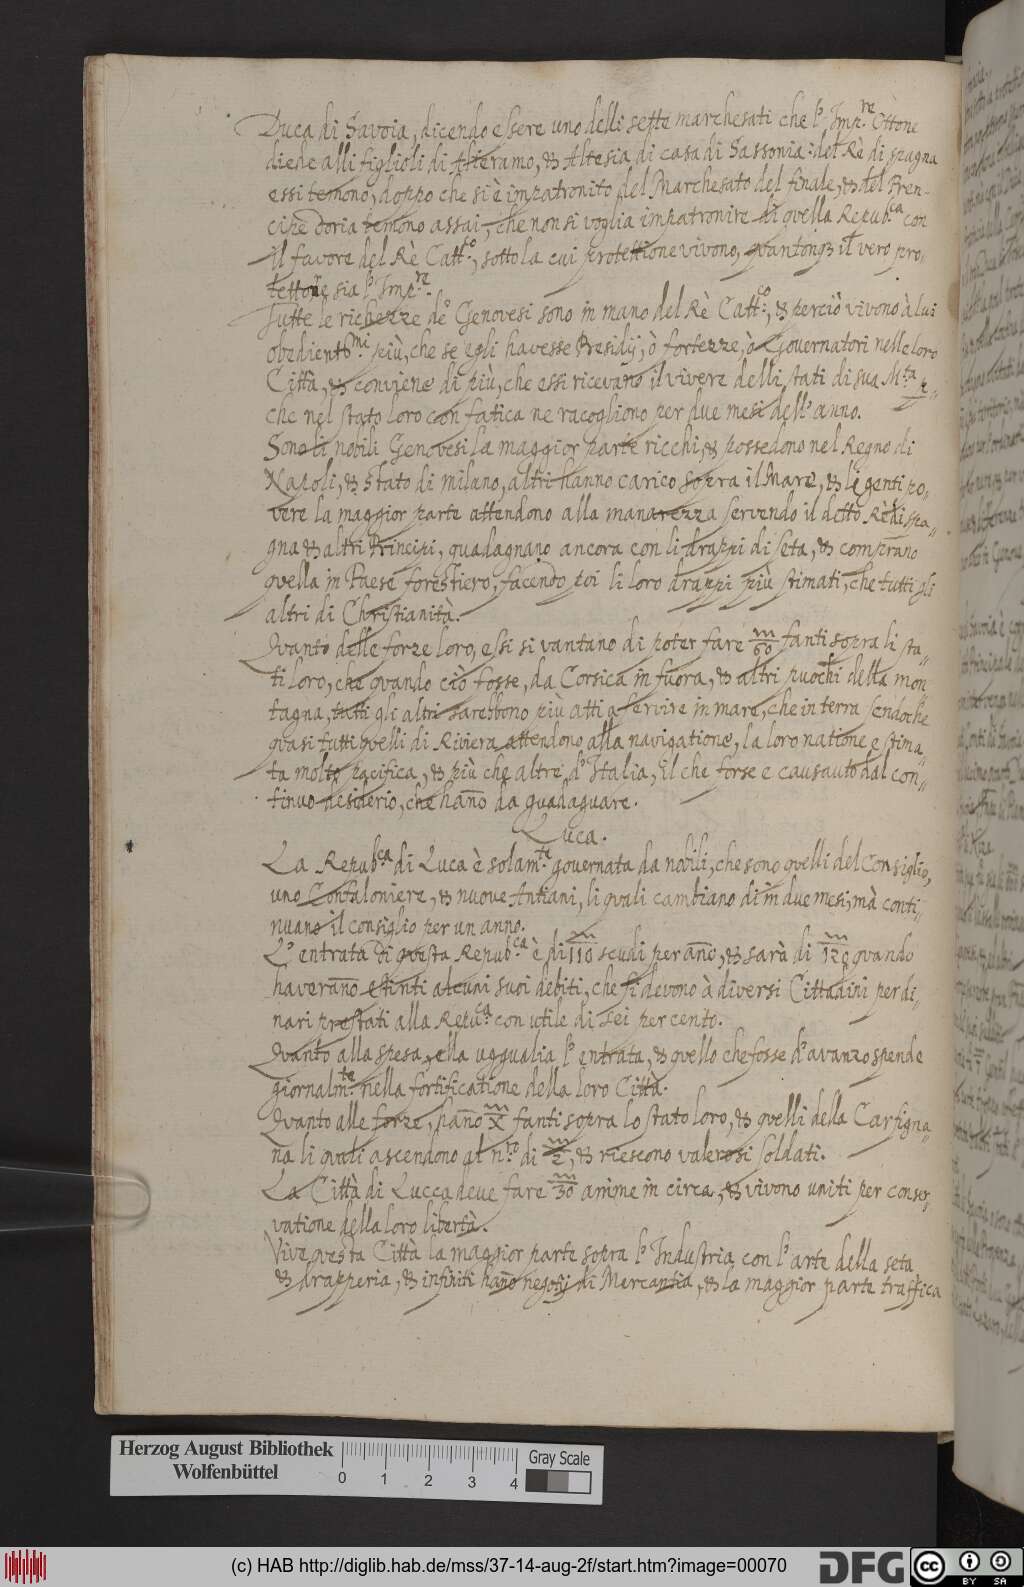 Duca di Savoia, dicendo essere uno delli sette marchesati che l'Imp.re Ottone
diede alli figlioli di Aleramo, & Altesia di casa di Sassonia: del Rè di spagna
essi temono, doppo che si è impatronito del Marchesato del finale, & del Pren-
cipe Doria temono assai, che non si voglia impatronire di quella Repub.ca con
il favore del Rè Catt.co, sotto la cui protettione vivono, quantonq3 il vero pro-
tettore sia l'Imp.re.
Tutte le richezze de' Genovesi sono in mano del Rè Catt.co, & perciò vivono à lui
obedient.mi più, che se egli havesse Presidij, ò fortezze, ò Governatori nelle loro
Città, & conviene di più, che essi ricevano il vivere delli stati di sua M.tà
che nel stato loro con fatica ne racogliono per due mesi dell'anno.
Sono li nobili Genovesi la maggior parte ricchi, & possedono nel Regno di
Napoli, & Stato di milano, altri hanno carico sopra il Mare, & le genti po-
vere la maggior parte attendono alla marinarezza servendo il detto Rè di spa-
gna & altri Principi, guadagnano ancora con li drappi di seta, & comprano
quella in Paese forestiero, facendo poi li loro drappi più stimati, che tutti gli
altri di Christianità.
Quanto delle forze loro, essi si vantano di poter fare m/60 fanti sopra li sta-
ti loro, che quando ciò fosse, da Corsica in fuora, & altri puochi della mon-
tagna, tutti gli altri sarebbono più atti a servire in mare, che in terra sendoche
quasi tutti quelli di Riviera attendono alla navigatione, la loro natione e stima-
ta molto pacifica, & più che altre d'Italia, Il che forse e causato dal con-
tinuo desiderio, che hano da guadagnare.
Luca.
La Repub.ca di Luca è solam.te governata da nobili, che sono quelli del Consiglio,
uno Confaloniere, & nuove Antiani, li quali cambiano di in due mesi, mà conti-
nuano il consiglio per un anno.
L'entrata di questa Repub.ca è di m/110 scudi per ano, & sarà di m/120 quando
haverano estinti alcuni suoi debiti, che si devono à diversi Cittadini per di-
nari prestati alla Repu.ca con utile di sei per cento.
Quanto alla spesa, ella uggualia l'entrata, & quello che fosse d'avanzo spende
giornalm.te nella fortificatione della loro Città.
Quanto alle forze, hano m/X fanti sopra lo stato loro, & quelli della Carfigna-
na li quali ascendono al n.ro di m/2, & riescono valerosi soldati.
La Città di Lucca deve fare m/30 anime in circa, & vivono uniti per conser-
vatione della loro libertà.
Vive questa Città la maggior parte sopra l'Industria con l'arte della seta
& drapperia, & infiniti hano negotij di Mercantia, & la maggior parte traffica
Herzog August Bibliothek
Wolfenbüttel
0 1 2 3 4
Gray Scale
(c) HAB http://diglib.hab.de/mss/37-14-aug-2f/start.htm?image=00070
DFG
cc BY SA